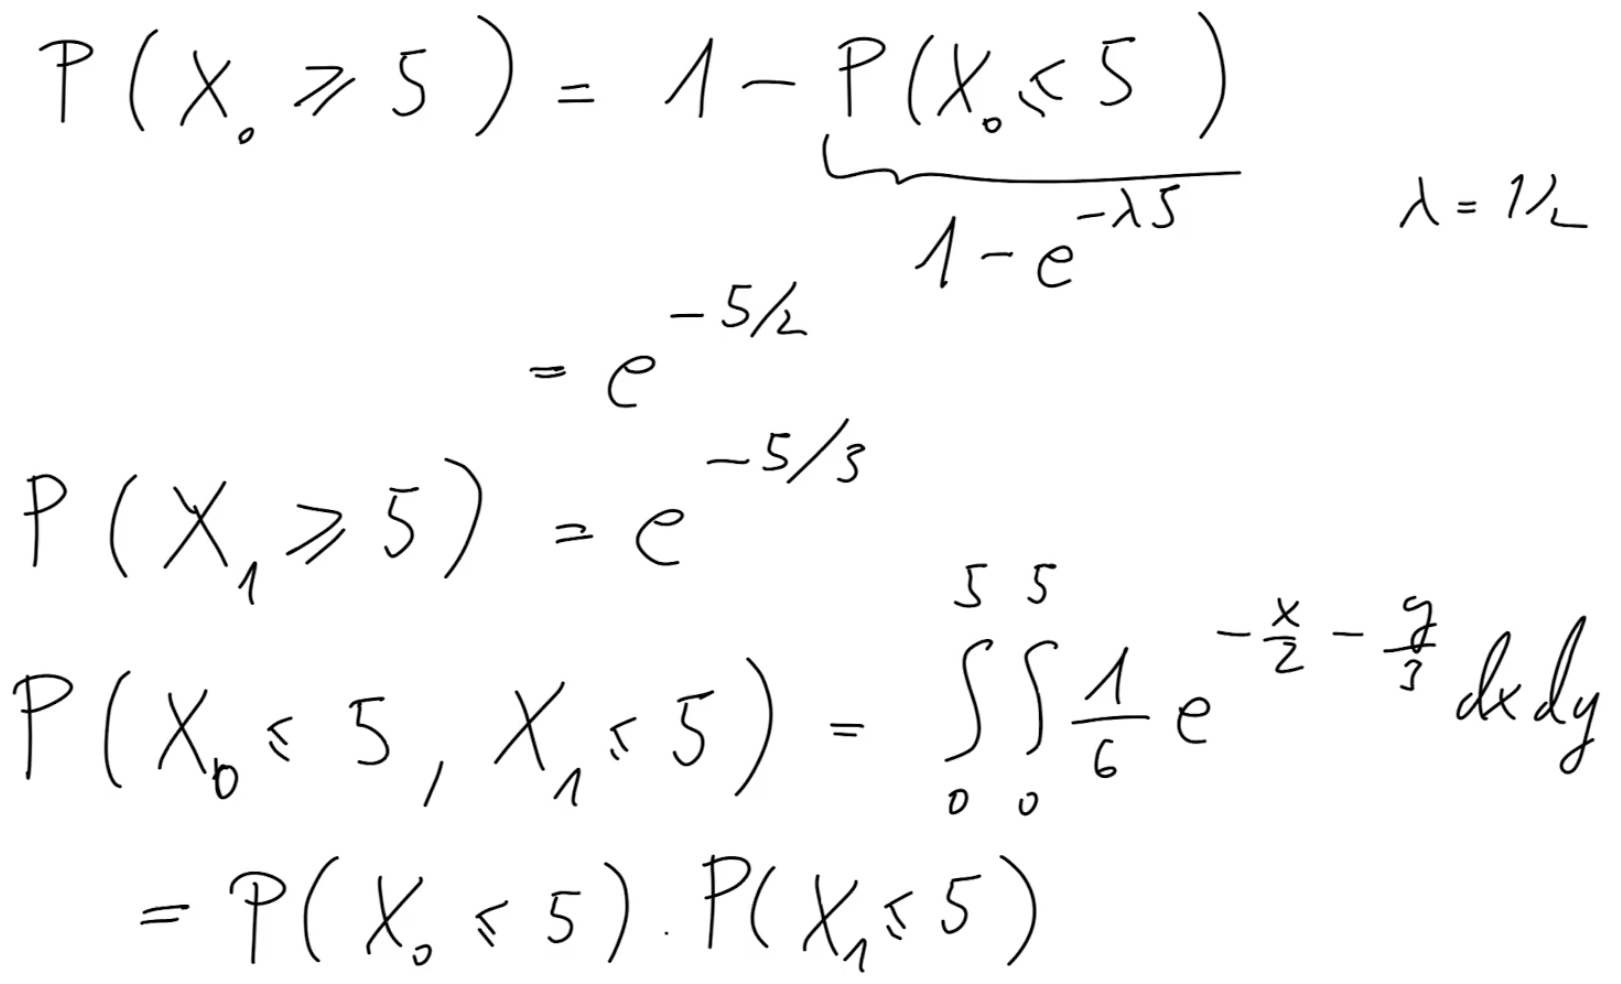 P(X₀ ⩾ 5) = 1 - P(X₀ ⩽ 5)
λ = 1/2
1 - e^{-λ5}
= e^{-5/2}
P(X₁ ⩾ 5) = e^{-5/3}
P(X₀ ⩽ 5, X₁ ⩽ 5) = ∫₀⁵ ∫₀⁵ 1/6 e^{-x/2 - y/3} dx dy
= P(X₀ ⩽ 5) . P(X₁ ⩽ 5)